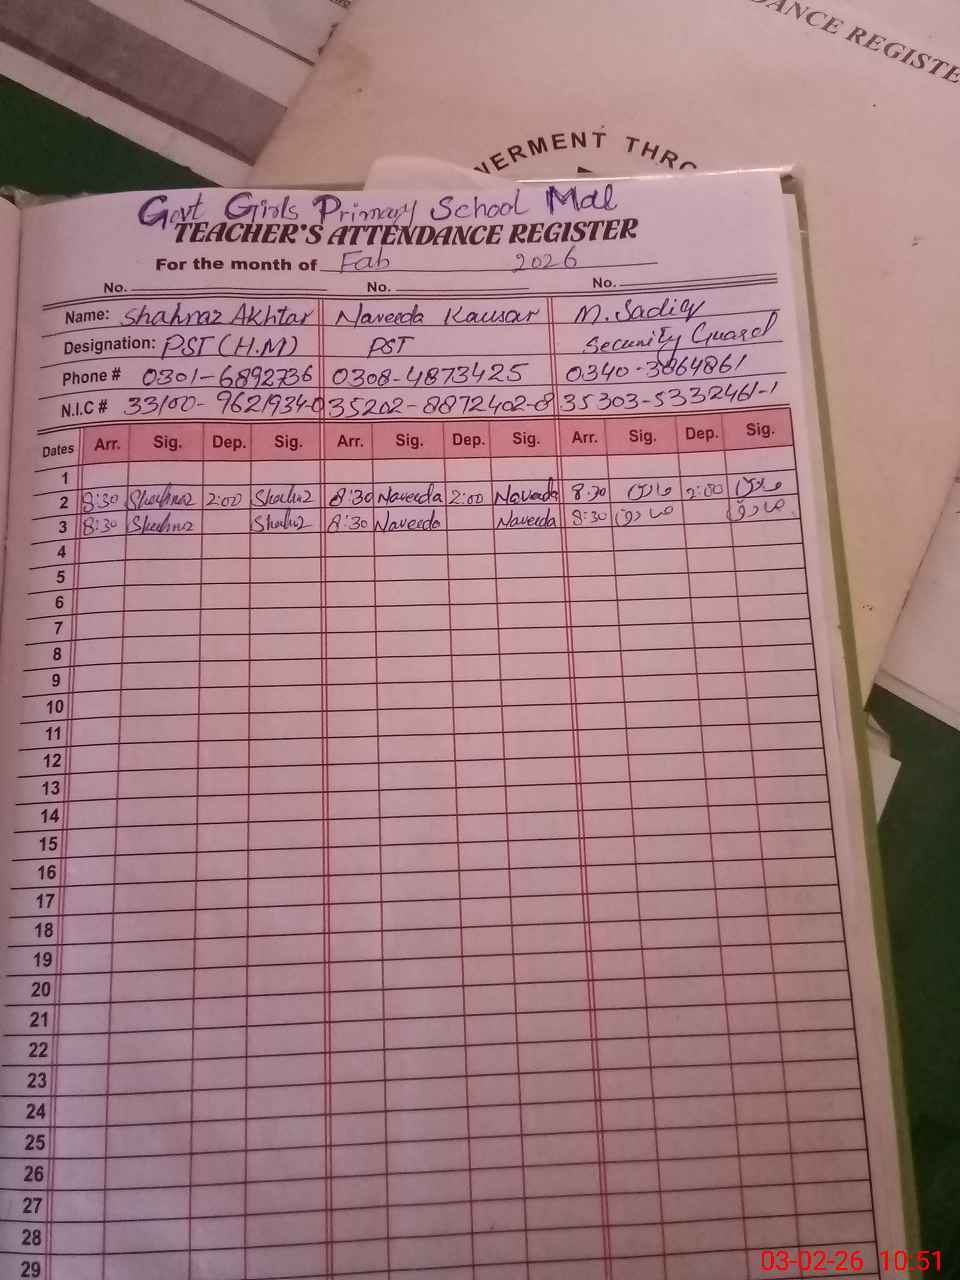 DANCE REGISTE
VERMENT THRO
Govt Girls Primary School Mdl
TEACHER'S ATTENDANCE REGISTER
For the month of Fab 2026
No. No. No.
Name: Shahnaz Akhtar Naveeda Kausar M. Sadiq
Designation: PST (H.M) PST Security Guard
Phone # 0301-6892736 0308-4873425 0340-3864861
N.I.C # 33100-9621934-0 35202-8872402-8 35303-5332461-1
Dates Arr. Sig. Dep. Sig. Arr. Sig. Dep. Sig. Arr. Sig. Dep. Sig.
1
2 8:30 Shahnaz 2:00 Shahnaz 8:30 Naveeda 2:00 Naveeda 8:30 صادق 2:00 صادق
3 8:30 Shahnaz Shahnaz 8:30 Naveeda Naveeda 8:30 صادق صادق
4
5
6
7
8
9
10
11
12
13
14
15
16
17
18
19
20
21
22
23
24
25
26
27
28
29
03-02-26 10:51